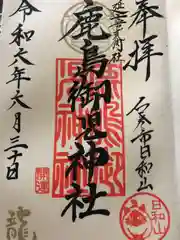 奉拝
延喜式内社
石巻市日和山
鹿島御児神社
令和六年六月三十日
日和山
龍